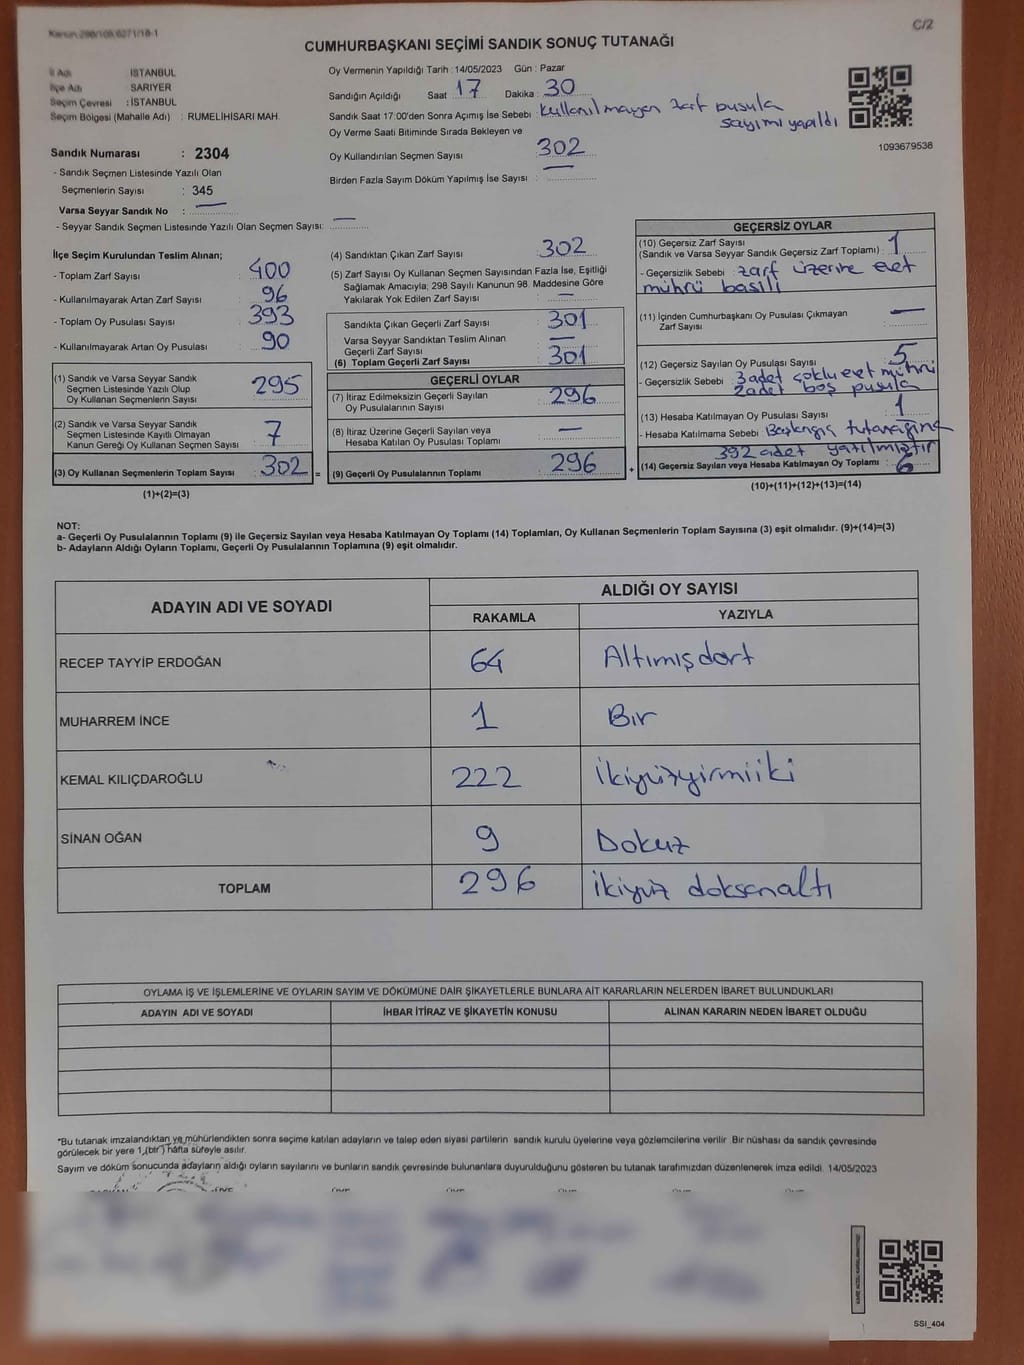 Kanun:298/108,6271/18-1
C/2
CUMHURBAŞKANI SEÇİMİ SANDIK SONUÇ TUTANAĞI
İl Adı : İSTANBUL
İlçe Adı : SARIYER
Seçim Çevresi : İSTANBUL
Seçim Bölgesi (Mahalle Adı) : RUMELİHİSARI MAH.
Sandık Numarası : 2304
- Sandık Seçmen Listesinde Yazılı Olan
Seçmenlerin Sayısı : 345
Varsa Seyyar Sandık No : —
- Seyyar Sandık Seçmen Listesinde Yazılı Olan Seçmen Sayısı: —
Oy Vermenin Yapıldığı Tarih : 14/05/2023 Gün : Pazar
Sandığın Açıldığı Saat 17 Dakika : 30
Sandık Saat 17:00'den Sonra Açımış İse Sebebi : Kullanılmayan zarf pusula
sayımı yapıldı
Oy Verme Saati Bitiminde Sırada Bekleyen ve
Oy Kullandırılan Seçmen Sayısı : 302
Birden Fazla Sayım Döküm Yapılmış İse Sayısı : —
1093679538
İlçe Seçim Kurulundan Teslim Alınan;
- Toplam Zarf Sayısı : 400
- Kullanılmayarak Artan Zarf Sayısı : 96
- Toplam Oy Pusulası Sayısı : 393
- Kullanılmayarak Artan Oy Pusulası : 90
(1) Sandık ve Varsa Seyyar Sandık
Seçmen Listesinde Yazılı Olup
Oy Kullanan Seçmenlerin Sayısı : 295
(2) Sandık ve Varsa Seyyar Sandık
Seçmen Listesinde Kayıtlı Olmayan
Kanun Gereği Oy Kullanan Seçmen Sayısı : 7
(3) Oy Kullanan Seçmenlerin Toplam Sayısı : 302 =
(1)+(2)=(3)
(4) Sandıktan Çıkan Zarf Sayısı : 302
(5) Zarf Sayısı Oy Kullanan Seçmen Sayısından Fazla İse, Eşitliği
Sağlamak Amacıyla; 298 Sayılı Kanunun 98. Maddesine Göre
Yakılarak Yok Edilen Zarf Sayısı : —
Sandıkta Çıkan Geçerli Zarf Sayısı : 301
Varsa Seyyar Sandıktan Teslim Alınan
Geçerli Zarf Sayısı : —
(6) Toplam Geçerli Zarf Sayısı : 301
GEÇERLİ OYLAR
(7) İtiraz Edilmeksizin Geçerli Sayılan
Oy Pusulalarının Sayısı : 296
(8) İtiraz Üzerine Geçerli Sayılan veya
Hesaba Katılan Oy Pusulası Toplamı : —
(9) Geçerli Oy Pusulalarının Toplamı : 296 +
GEÇERSİZ OYLAR
(10) Geçersiz Zarf Sayısı
(Sandık ve Varsa Seyyar Sandık Geçersiz Zarf Toplamı) : 1
- Geçersizlik Sebebi : zarf üzerine evet
mührü basılı
(11) İçinden Cumhurbaşkanı Oy Pusulası Çıkmayan
Zarf Sayısı : —
(12) Geçersiz Sayılan Oy Pusulası Sayısı : 5
- Geçersizlik Sebebi : 3 adet çoklu evet mührü
2 adet boş pusula
(13) Hesaba Katılmayan Oy Pusulası Sayısı : 1
- Hesaba Katılmama Sebebi : Başlangıç tutanağına
392 adet yazılmıştır
(14) Geçersiz Sayılan veya Hesaba Katılmayan Oy Toplamı : 6
(10)+(11)+(12)+(13)=(14)
NOT:
a- Geçerli Oy Pusulalarının Toplamı (9) ile Geçersiz Sayılan veya Hesaba Katılmayan Oy Toplamı (14) Toplamları, Oy Kullanan Seçmenlerin Toplam Sayısına (3) eşit olmalıdır. (9)+(14)=(3)
b- Adayların Aldığı Oyların Toplamı, Geçerli Oy Pusulalarının Toplamına (9) eşit olmalıdır.
ADAYIN ADI VE SOYADI
ALDIĞI OY SAYISI
RAKAMLA YAZIYLA
RECEP TAYYİP ERDOĞAN 64 Altımışdört
MUHARREM İNCE 1 Bir
KEMAL KILIÇDAROĞLU 222 İkiyüzyirmiiki
SİNAN OĞAN 9 Dokuz
TOPLAM 296 ikiyüz doksanaltı
OYLAMA İŞ VE İŞLEMLERİNE VE OYLARIN SAYIM VE DÖKÜMÜNE DAİR ŞİKAYETLERLE BUNLARA AİT KARARLARIN NELERDEN İBARET BULUNDUKLARI
ADAYIN ADI VE SOYADI İHBAR İTİRAZ VE ŞİKAYETİN KONUSU ALINAN KARARIN NEDEN İBARET OLDUĞU
*Bu tutanak imzalandıktan ve mühürlendikten sonra seçime katılan adayların ve talep eden siyasi partilerin sandık kurulu üyelerine veya gözlemcilerine verilir. Bir nüshası da sandık çevresinde
görülecek bir yere 1 (bir) hafta süreyle asılır.
Sayım ve döküm sonucunda adayların aldığı oyların sayılarını ve bunların sandık çevresinde bulunanlara duyurulduğunu gösteren bu tutanak tarafımızdan düzenlenerek imza edildi. 14/05/2023
SSI_404